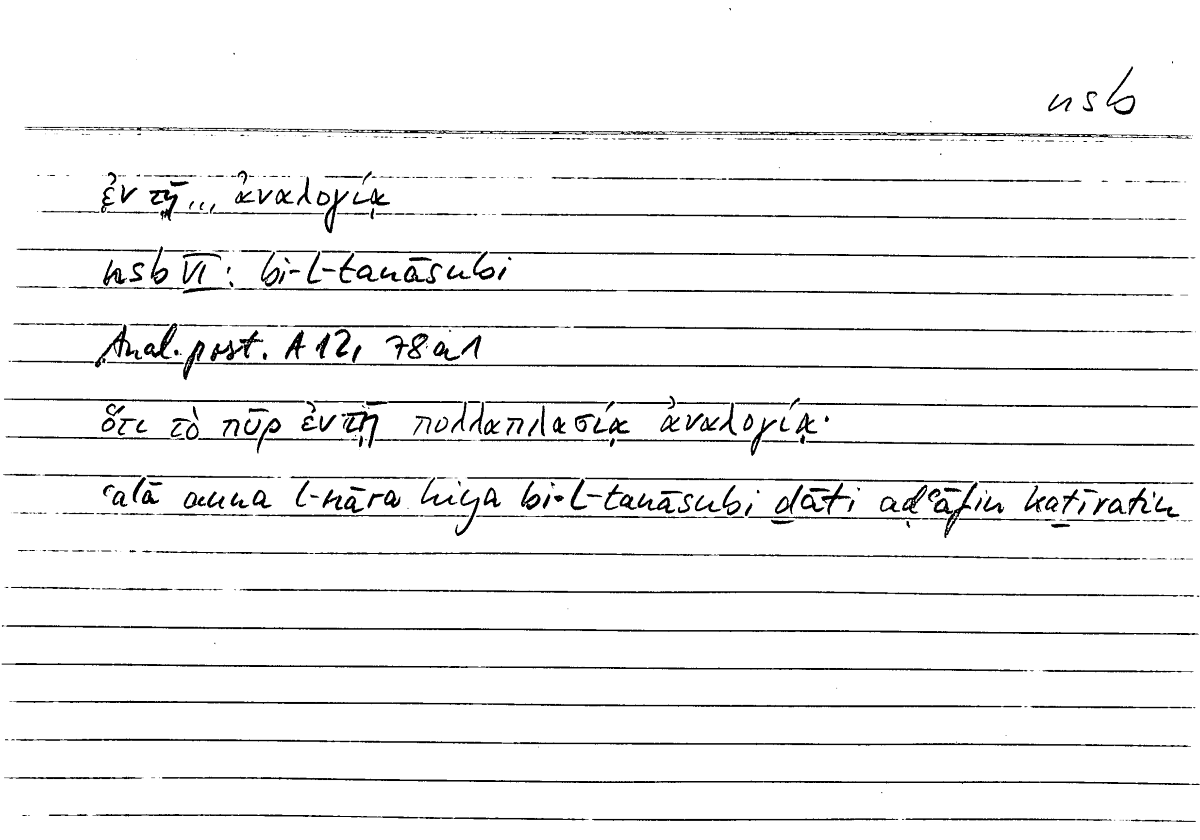 nsb
ἐν τῇ... ἀναλογίᾳ
nsb VI: bi-l-tanāsubi
Anal. post. A 12, 78 a 1
ὅτι τὸ πῦρ ἐν τῇ πολλαπλασίᾳ ἀναλογίᾳ·
ʿalā anna l-nāra hiya bi-l-tanāsubi ḏāti aḍʿāfin kaṯīratin